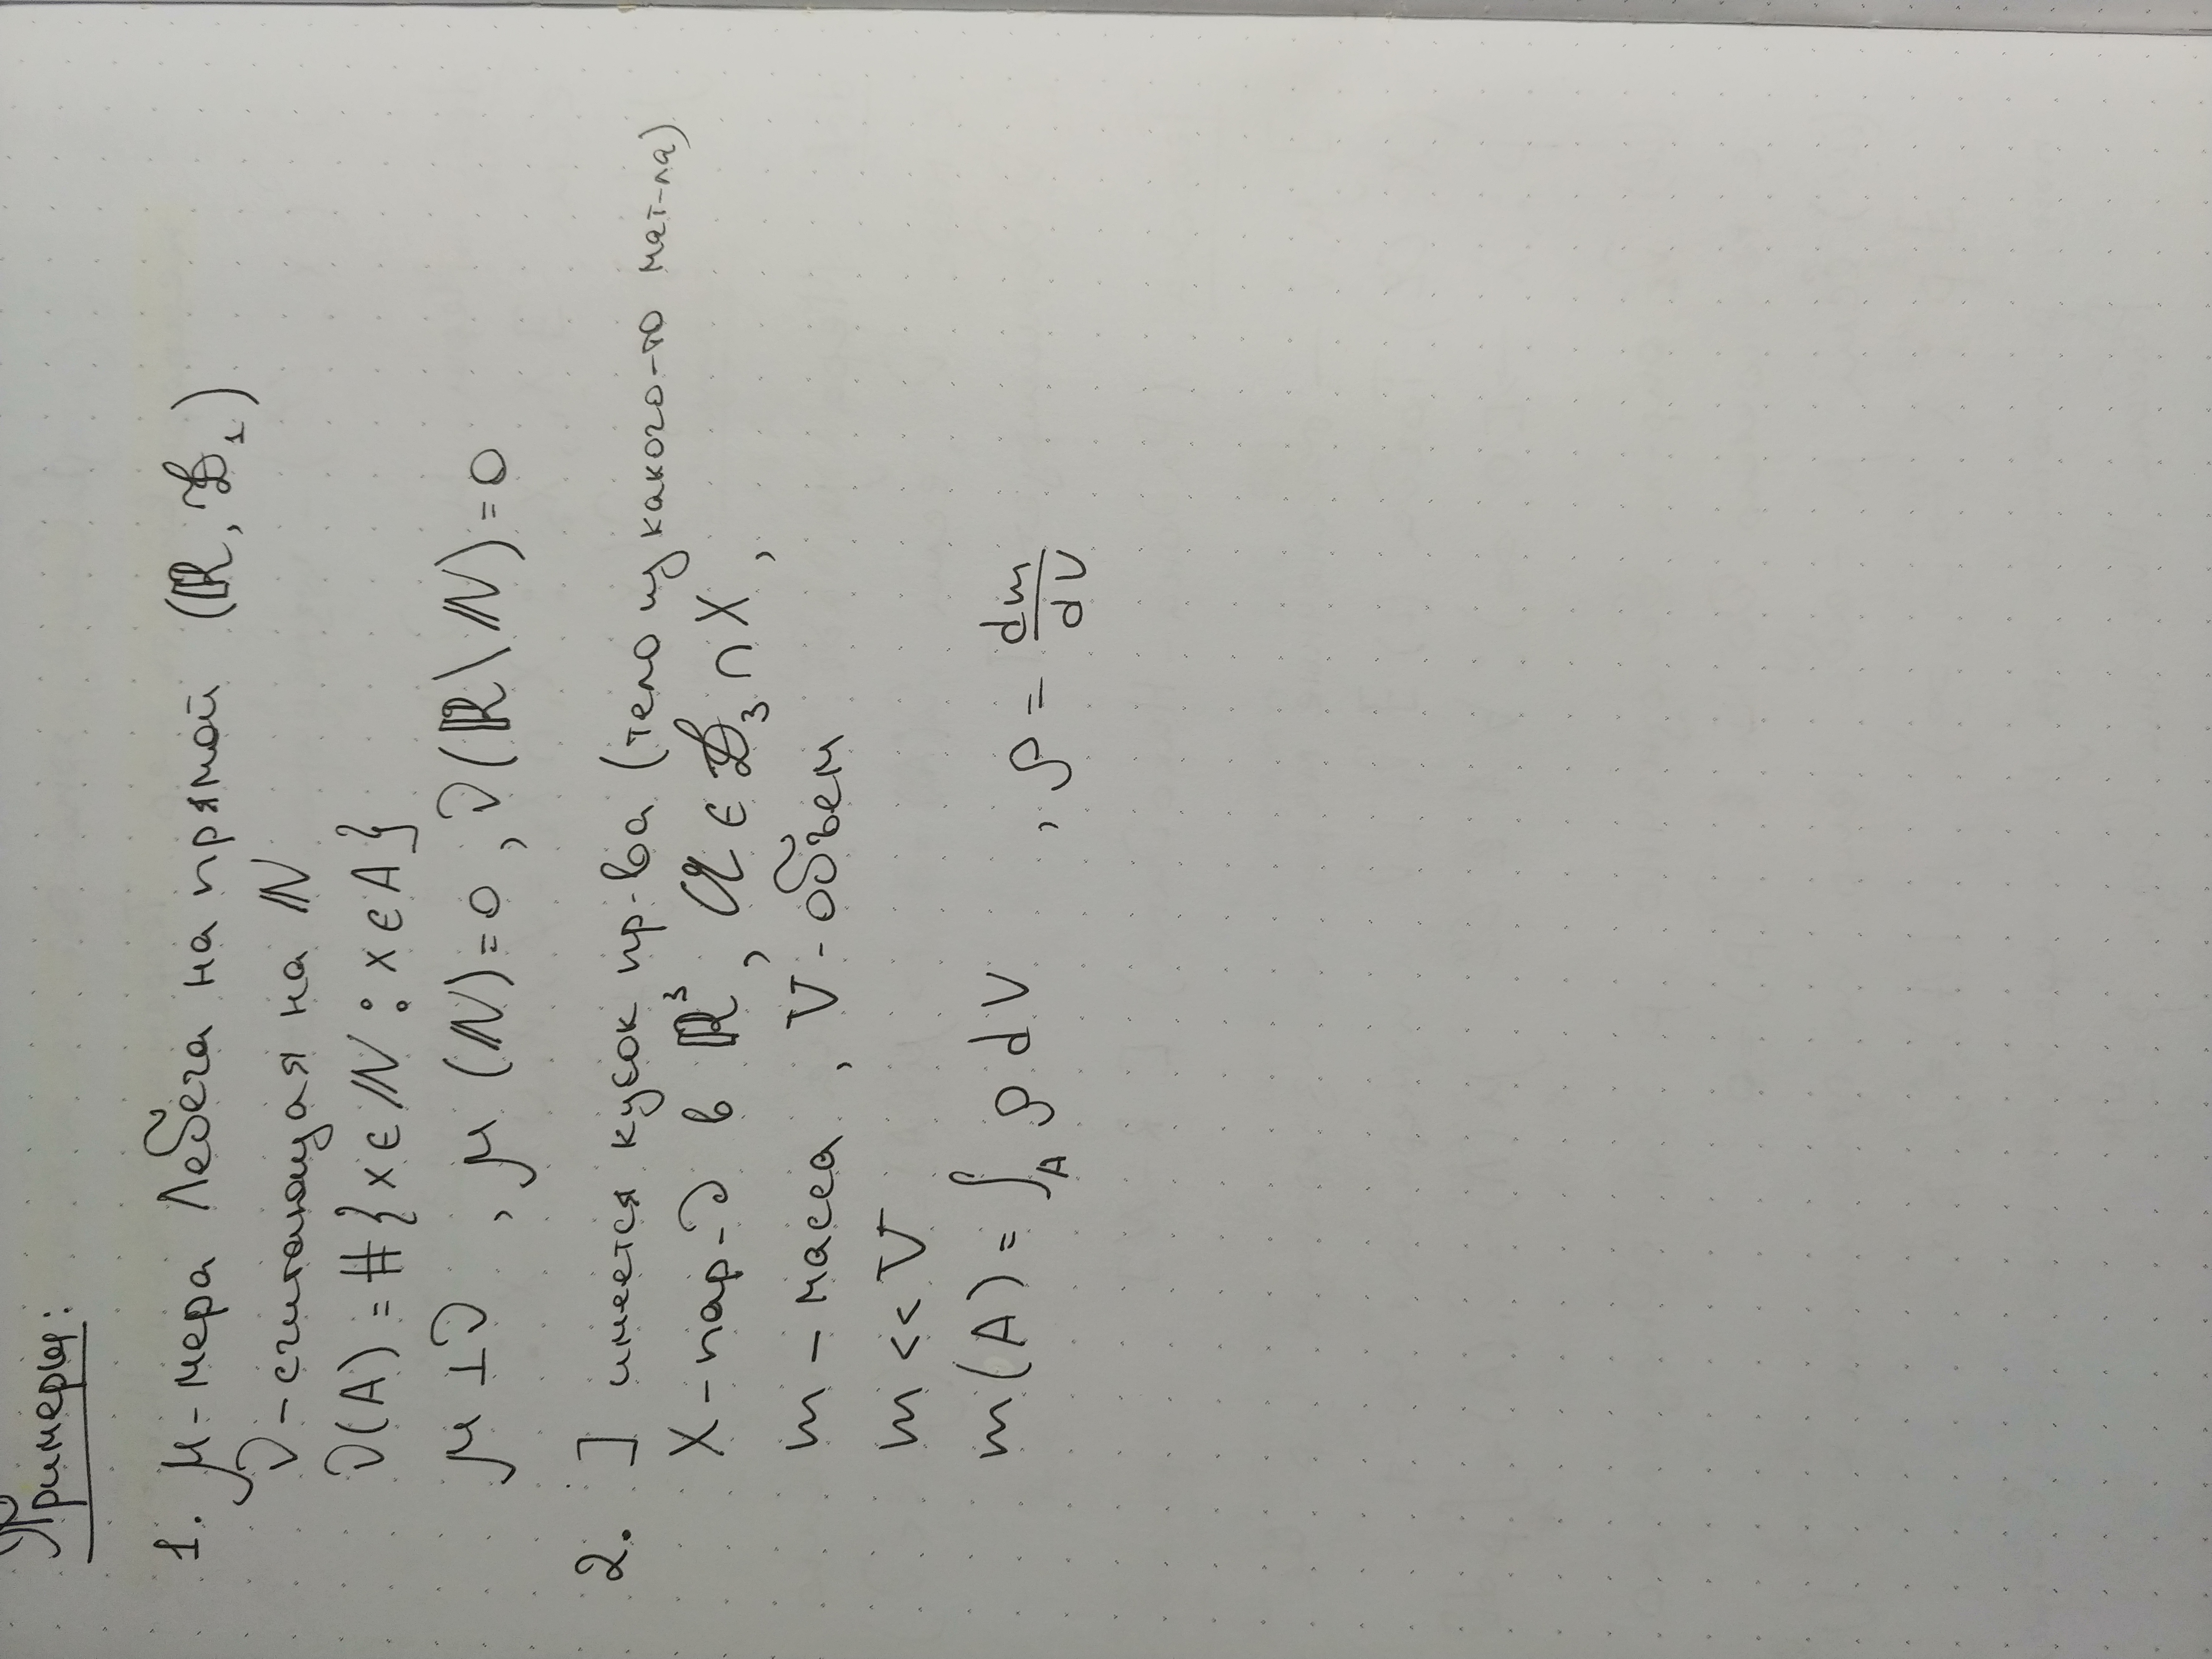 Примеры:
1. μ-мера Лебега на прямой (ℝ, ℬ₁)
ν-считающая на ℕ
ν(A) = #{x ∈ ℕ : x ∈ A}
μ ⊥ ν , μ(ℕ)=0, ν(ℝ \ ℕ)=0
2. ] имеется кусок пр-ва (тело из какого-то мат-ла)
X-пар-д в ℝ³, 𝒜 ∈ ℬ₃ ∩ X,
m – масса , V - объем
m << V
m(A) = ∫_A ρ dV , ρ = dm/dV